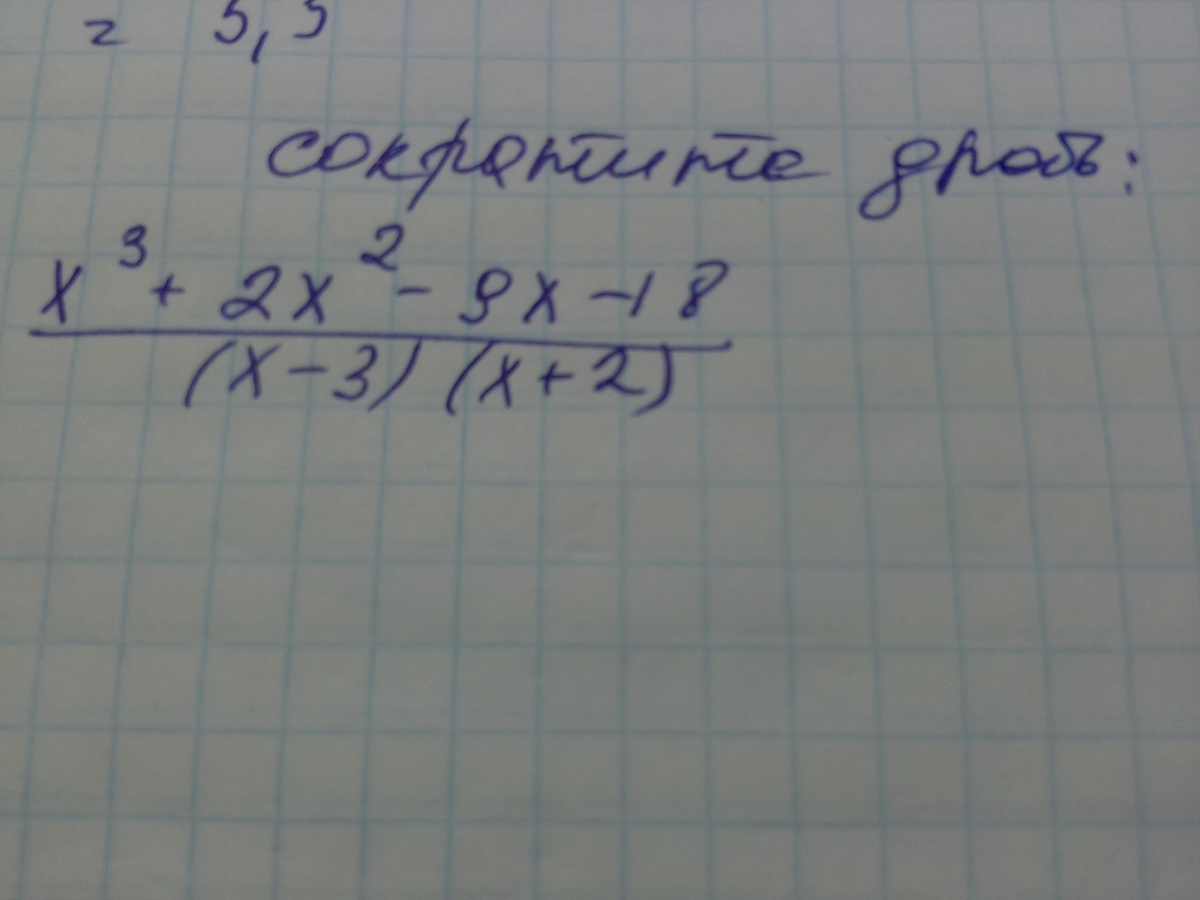 = 5,5
сократите дробь:
x³ + 2x² - 9x - 18
(x - 3) (x + 2)